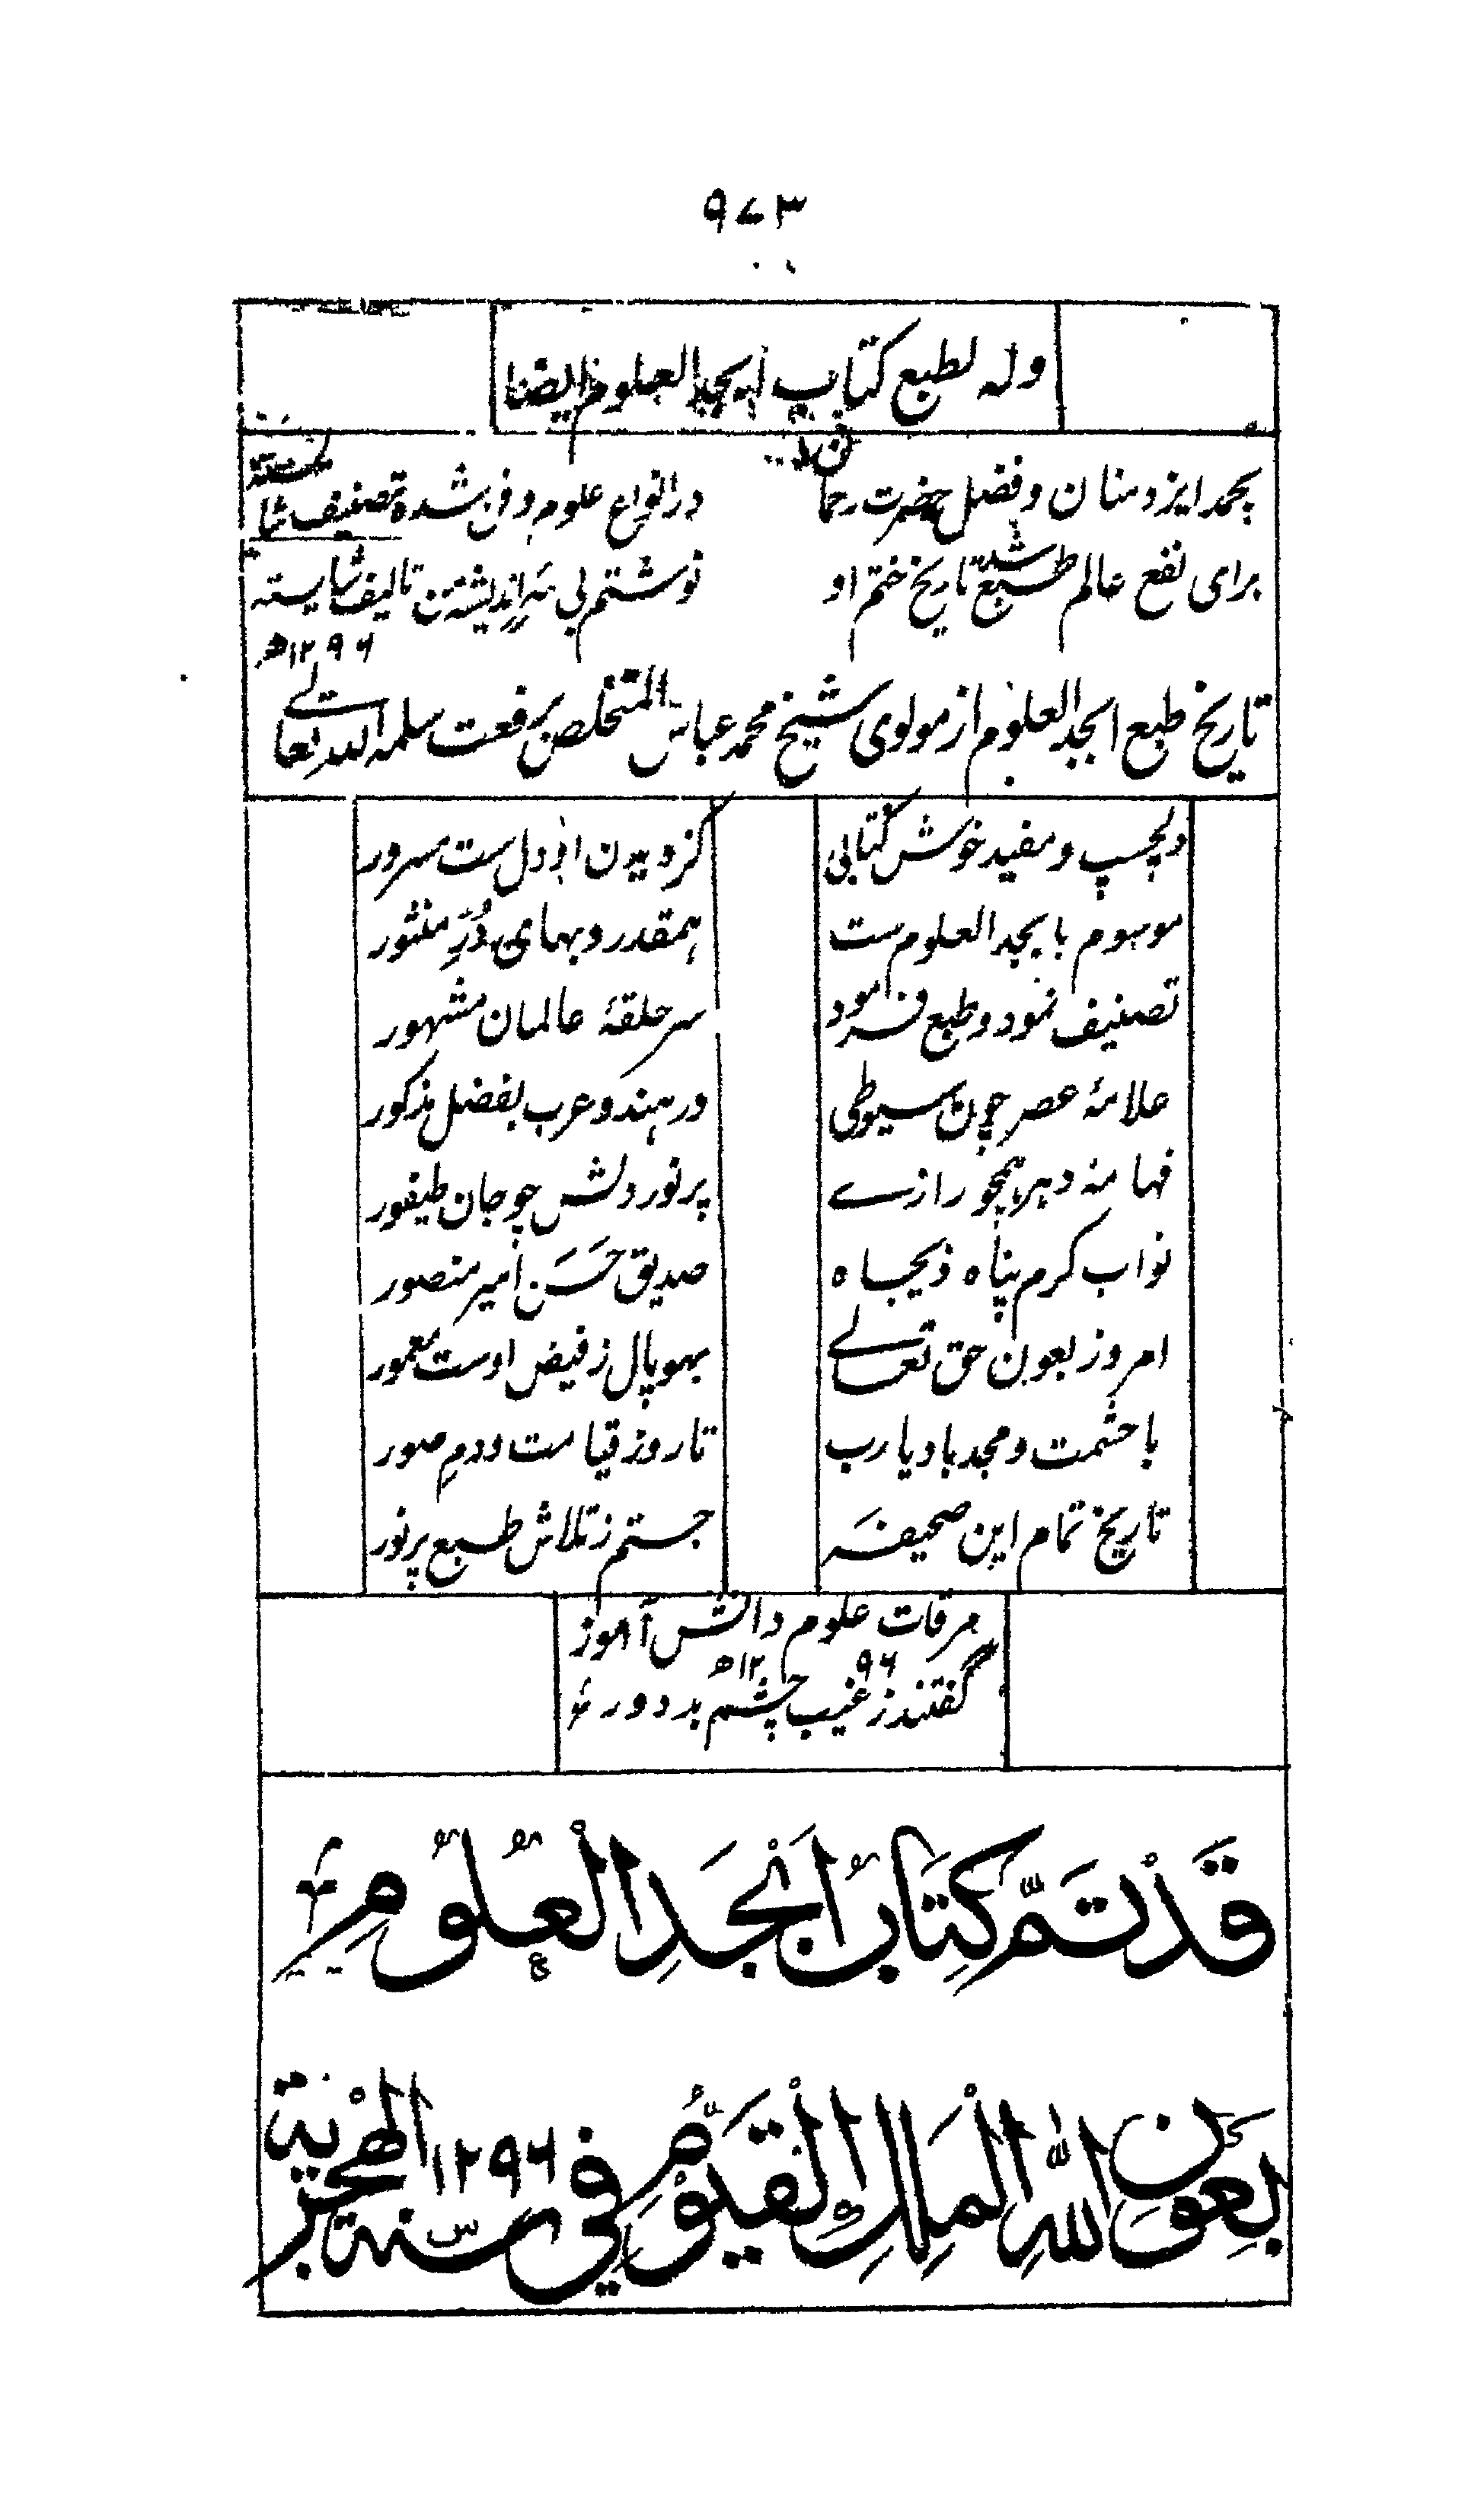 ۹۷۳
وله لطبع کتاب ابجد العلوم ایضا
بحمد ایزد منان و فضل حضرت رحمان در انواع علوم و فن شده تصنیف شایسته
برای نفع عالم طبع شد تاریخ ختم او نوشتم بی سر اندیشه من تالیف شایسته
۱۲۹۶ھ
تاریخ طبع ابجد العلوم از مولوی شیخ محمد عباس المتخلص برفعت سلمه الله تعالے
دلچسپ و مفید خوش کتابی کز دیدن او دل ست مسرور
موسوم بابجد العلوم ست همقدر و بهای دُرِّ منثور
تصنیف نمود و طبع فرمود سر حلقۂ عالمان مشهور
علامۂ عصر چون سیوطی در هند و عرب بفضل مذکور
فهامۂ دهر همچو رازے پر نور دلش چو جان طیفور
نواب کرم پناه ذیجاه صدیق حَسَن امیر منصور
امروز بعون حق تعالے بهوپال ز فیض اوست معمور
با حشمت و مجد باد یا رب تا روز قیامت و دمِ صور
تاریخ تمام این صحیفہ جستم ز تلاش طبع پر نور
مرقات علوم دانش آموز
۱۲۹۶ھ
گفتند ز غیب چشم بد دور
قَدْ تَمَّ كِتَابُ اَبْجَدِ الْعُلُوْمِ
بِعَوْنِ اللّٰهِ الْمَلِكِ الْقَيُّوْمِ فِي سَنَة ۱۲۹۶ الهجرية